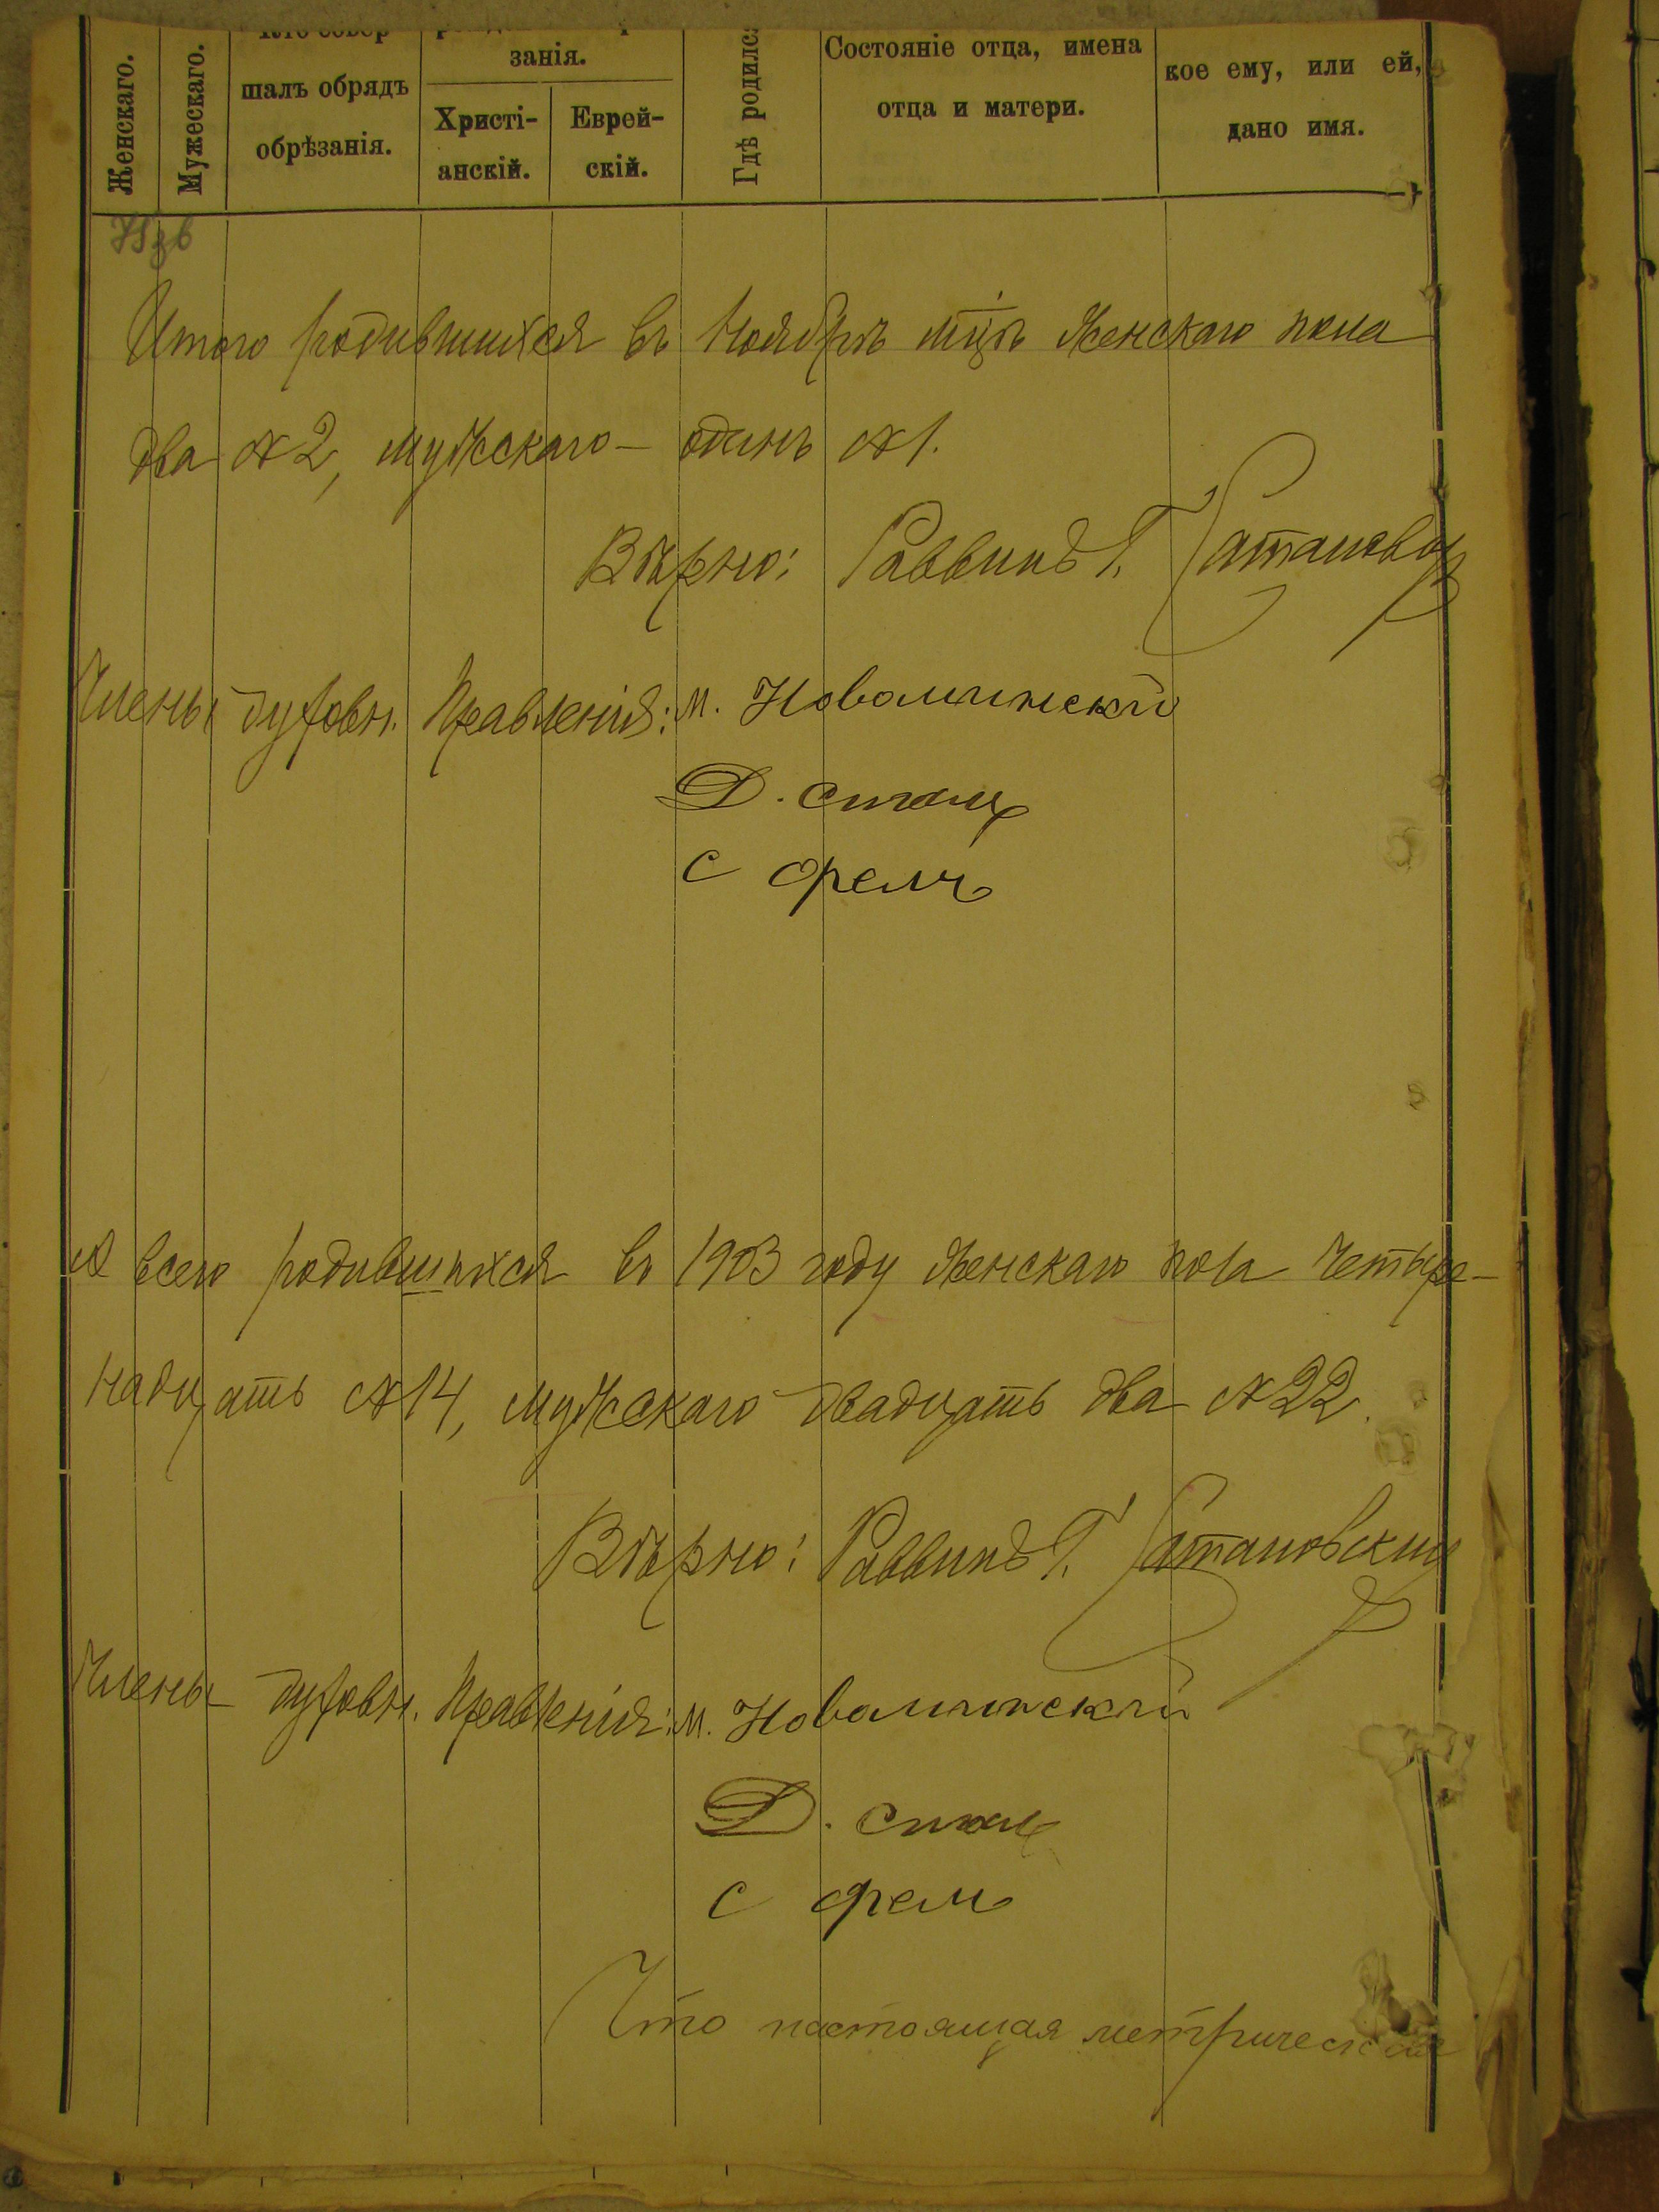 Женскаго.
Мужескаго.
шалъ обрядъ
обрѣзанія.
занія.
Христі-
анскій.
Еврей-
скій.
Гдѣ родился
Состояніе отца, имена
отца и матери.
кое ему, или ей,
дано имя.
Итого родившихся въ Ноябрѣ мцѣ женскаго пола
два № 2, мужскаго – одинъ № 1.
Вѣрно: Раввинъ Г.
Члены духовн. Правленія: М. Новоминскій
Д. Столц
С
А всего родившихся въ 1903 году женскаго пола четыре-
надцать № 14, мужскаго двадцать два № 22.
Вѣрно: Раввинъ Г. Сатановскій
Члены духовн. Правленія: М. Новоминскій
Д.
С
Что настоящая метрическая